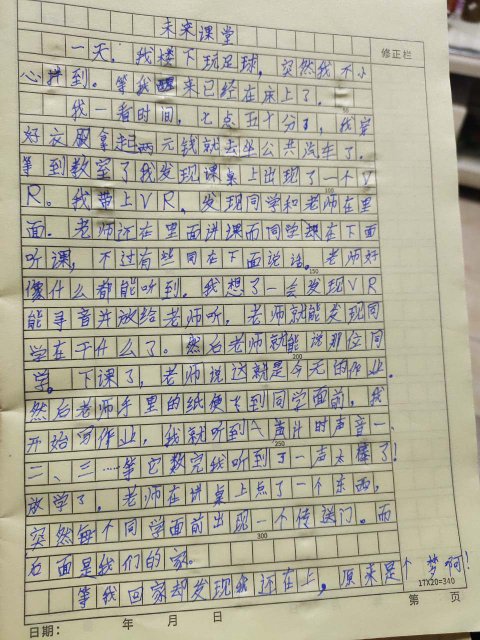 未来课堂
修正栏
一天，我楼下玩足球，突然我不小
心摔到。等我醒来已经在床上了。
我一看时间，七点五十分了，我穿
好衣服拿起两元钱就去坐公共汽车了，
等到教室了我发现课桌上出现了一个V
100
R。我带上VR，发现同学和老师在里
面。老师还在里面讲课而同学却在下面
听课，不过有些同在下面说话。老师好
150
像什么都能听到。我想了一会发现VR
能寻音并放给老师听，老师就能发现同
学在干什么了。然后老师就能说那位同
200
学。下课了，老师说这就是今天的作业。
然后老师手里的纸便飞到同学面前。我
开始写作业，我就听到八黄计时声音一、
250
二、三……等它数完我听到了一声太棒了！
放学了，老师在讲桌上点了一个东西，
突然每个同学面前出现一个传送门。而
300
后面是我们的家。
等我回家却发现我还在上，原来是个梦啊！
17X20=340
日期： 年 月 日 第 页